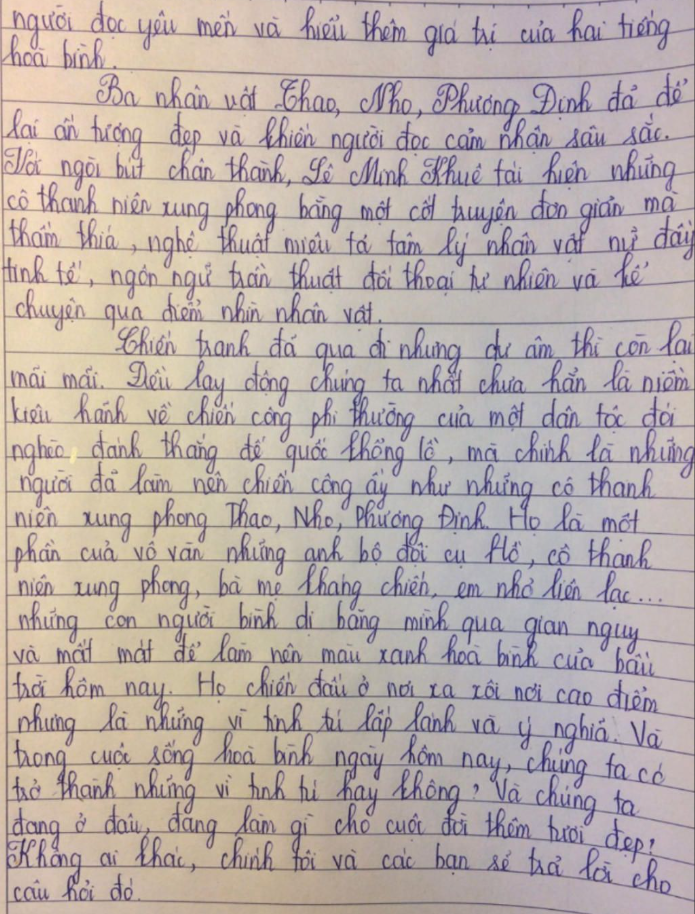 người đọc yêu mến và hiểu thêm giá trị của hai tiếng
hoà bình.
Ba nhân vật Thao, Nho, Phương Định đã để
lại ấn tượng đẹp và khiến người đọc cảm nhận sâu sắc.
Với ngòi bút chân thành, Lê Minh Khuê tái hiện những
cô thanh niên xung phong bằng một cốt truyện đơn giản mà
thấm thía, nghệ thuật miêu tả tâm lý nhân vật nữ đầy
tinh tế, ngôn ngữ trần thuật đối thoại tự nhiên và kể
chuyện qua điểm nhìn nhân vật.
Chiến tranh đã qua đi nhưng dư âm thì còn lại
mãi mãi. Điều lay động chúng ta nhất chưa hẳn là niềm
kiêu hãnh về chiến công phi thường của một dân tộc đói
nghèo, đánh thắng đế quốc khổng lồ, mà chính là những
người đã làm nên chiến công ấy như những cô thanh
niên xung phong Thao, Nho, Phương Định. Họ là một
phần của vô vàn những anh bộ đội cụ Hồ, cô thanh
niên xung phong, bà mẹ kháng chiến, em nhỏ liên lạc...
những con người bình dị bằng mình qua gian nguy
và mất mát để làm nên màu xanh hoà bình của bầu
trời hôm nay. Họ chiến đấu ở nơi xa xôi nơi cao điểm
nhưng là những vì tinh tú lấp lánh và ý nghĩa. Và
trong cuộc sống hoà bình ngày hôm nay, chúng ta có
trở thành những vì tinh tú hay không? Và chúng ta
đang ở đâu, đang làm gì cho cuộc đời thêm tươi đẹp?
Không ai khác, chính tôi và các bạn sẽ trả lời cho
câu hỏi đó.